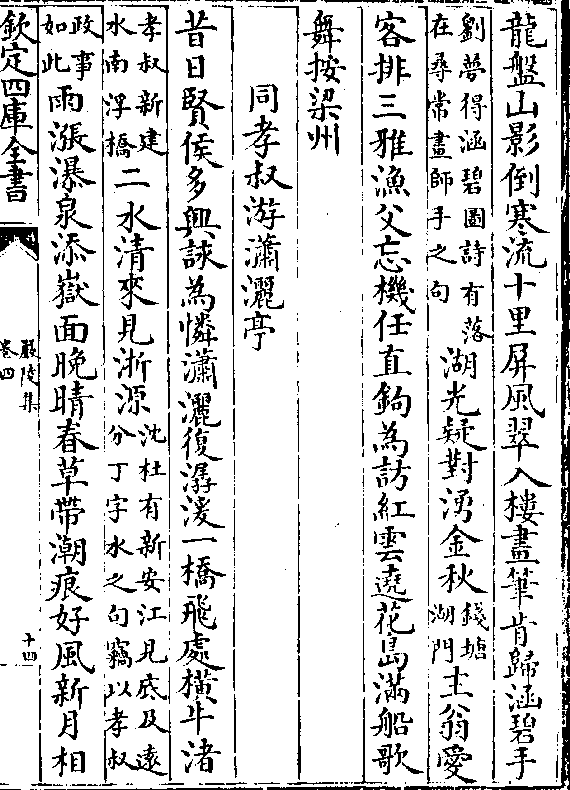 龍盤山影倒寒流十里屏風翠入樓畫筆肯歸涵碧手
劉夢得涵碧圖詩有落
在尋常畫師手之句
湖光疑對湧金秋
錢塘
湖門
主翁愛
客排三雅漁父忘機任直鉤為訪紅雲遶花島滿船歌
舞按梁州
同孝叔游瀟灑亭
昔日賢侯多興詠為憐瀟灑復潺湲一橋飛處橫牛渚
孝叔新建
水南浮橋
二水清來見浙源
沈杜有新安江見底及遠
分丁字水之句竊以孝叔
政事
如此
雨漲瀑泉添嶽面晚晴春草帶潮痕好風新月相
欽定四庫全書
嚴陵集
卷四
十四